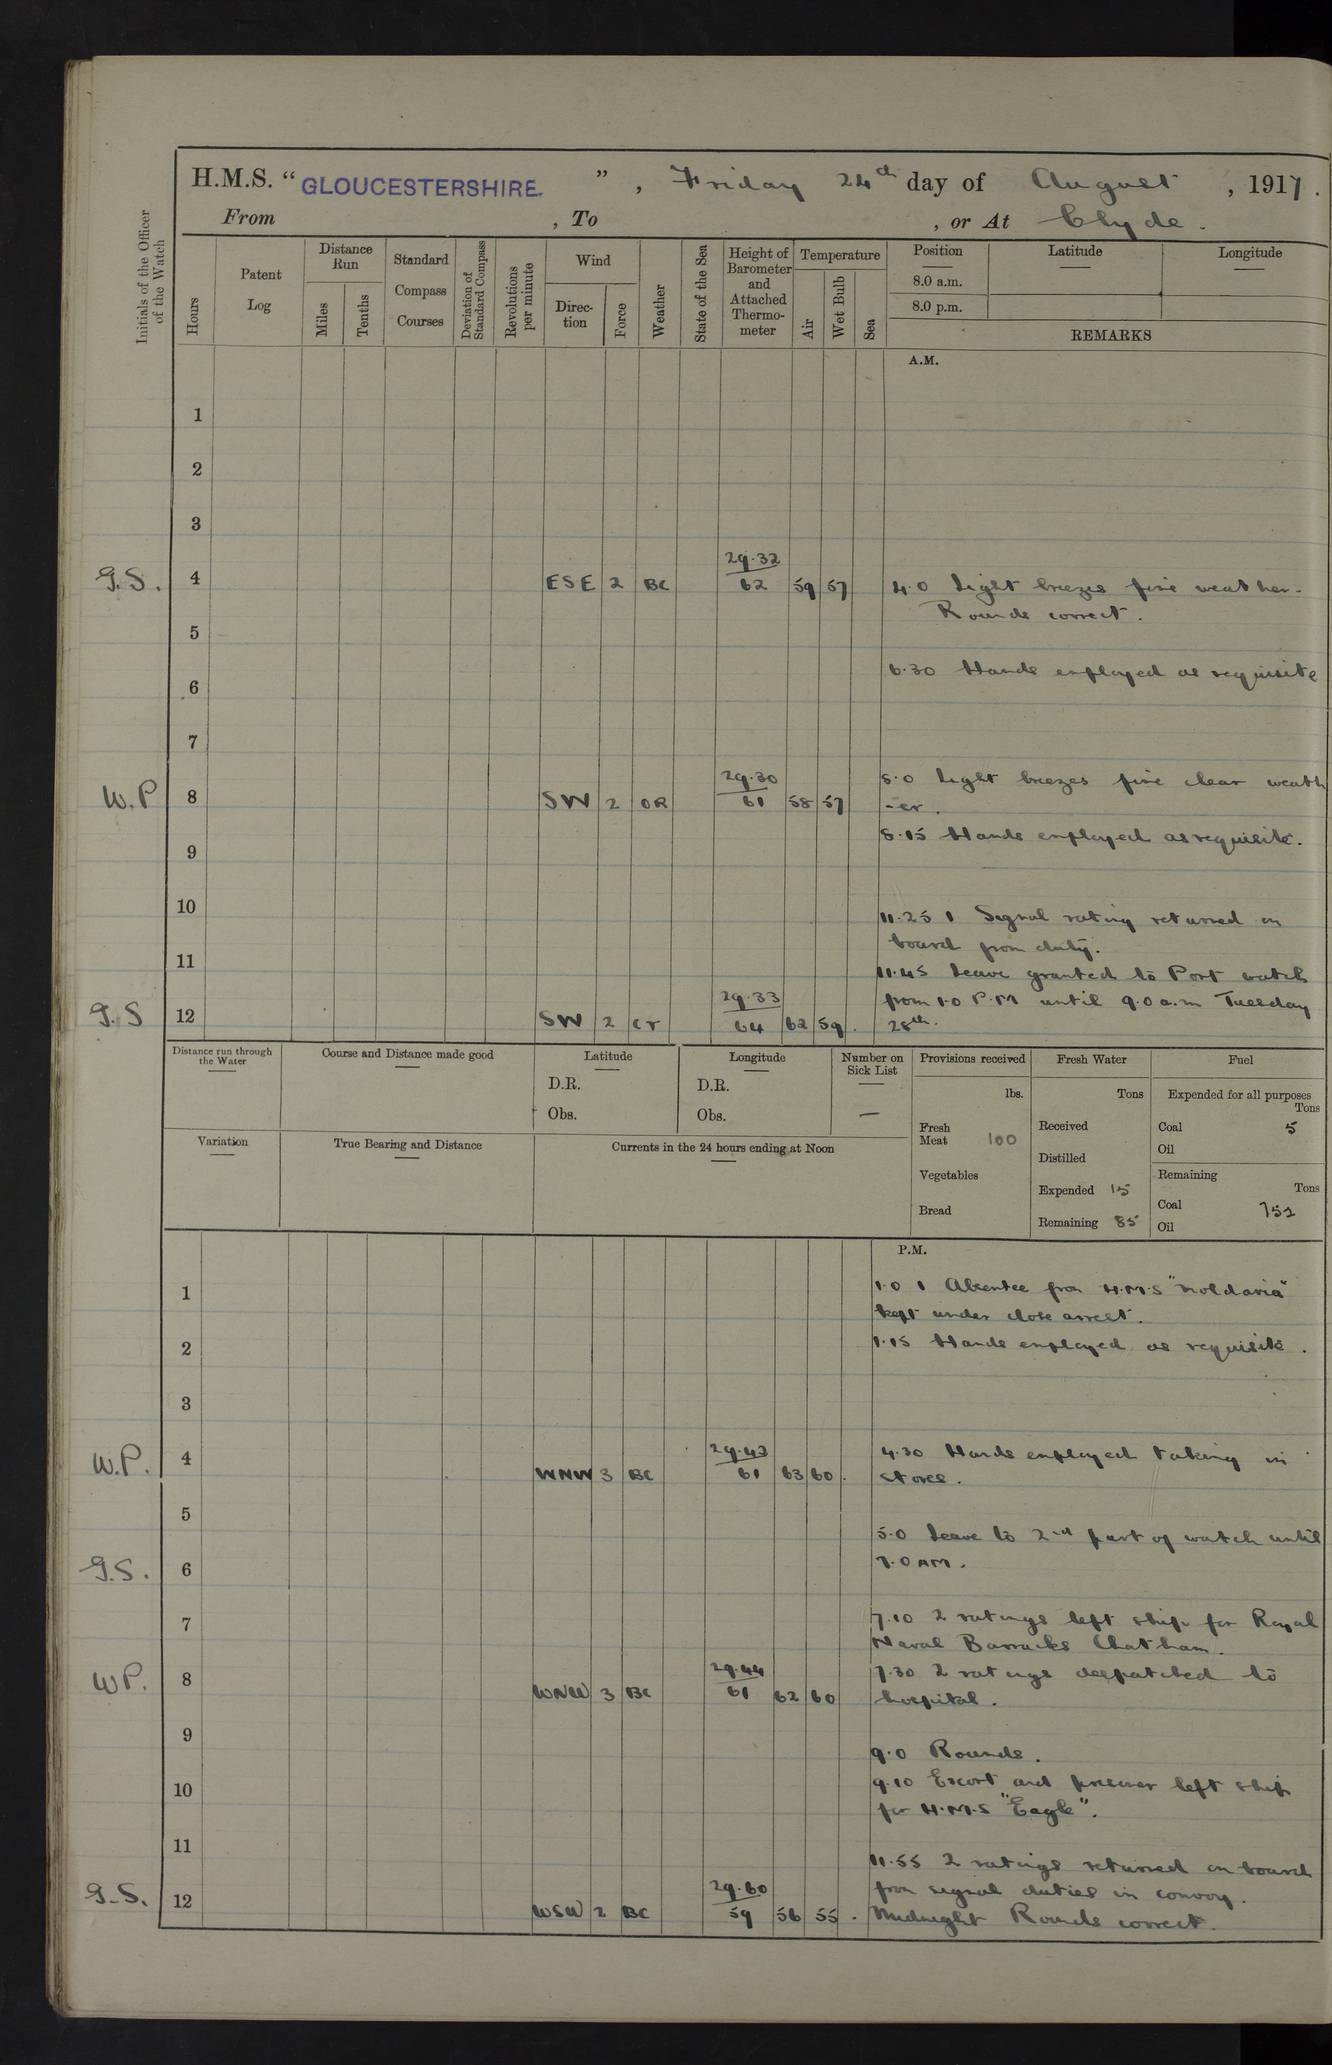 H.M.S. “ GLOUCESTERSHIRE ” , Friday 24th day of August , 1917 .
From , To , or At Clyde .
Initials of the Officer of the Watch
Hours
Patent Log
Distance Run
Miles
Tenths
Standard Compass Courses
Deviation of Standard Compass
Revolutions per minute
Wind
Direc-tion
Force
Weather
State of the Sea
Height of Barometer and Attached Thermo-meter
Temperature
Air
Wet Bulb
Sea
Position
8.0 a.m.
8.0 p.m.
Latitude
Longitude
REMARKS
A.M.
1
2
3
29.32
G.S. 4 ESE 2 BC 62 59 57 4.0 Light breezes fine weather.
Rounds correct.
5
6.30 Hands employed as requisite
6
7
29.30 8.0 Light breezes fine clear weath
W.P 8 SW 2 OR 61 58 57 -er.
8.15 Hands employed as requisite.
9
10
11.25 1 Signal rating returned on
board from duty.
11
11.45 Leave granted to Port watch
29.33 from 1.0 P.M until 9.0 a.m Tuesday
G.S 12 SW 2 64 62 59. 28th.
Distance run through the Water
Course and Distance made good
Latitude
D.R.
Obs.
Longitude
D.R.
Obs.
Number on Sick List
—
Provisions received
lbs.
Fresh Meat 100
Vegetables
Bread
Fresh Water
Tons
Received
Distilled
Expended 15
Remaining 85
Fuel
Expended for all purposes
Tons
Coal 5
Oil
Remaining
Tons
Coal 752
Oil
Variation
True Bearing and Distance
Currents in the 24 hours ending at Noon
P.M.
1 1.0 1 Absentee from H.M.S "Moldavia"
kept under close arrest.
2 1.15 Hands employed as requisite.
3
29.43 4.30 Hands employed taking in
W.P. 4 WNW 3 BC 61 63 60. stores.
5
5.0 Leave to 2nd part of watch until
G.S. 6 7.0 AM.
7 7.10 2 ratings left ship for Royal
Naval Barracks Chatham.
29.44 7.30 2 ratings despatched to
WP. 8 WNW 3 BC 61 62 60 hospital.
9
9.0 Rounds.
10 9.10 Escort and prisoner left ship
for H.M.S "Eagle".
11
11.55 2 ratings returned on board
29.60 from signal duties in convoy.
G.S. 12 WSW 2 BC 59 56 55. Midnight Rounds correct.